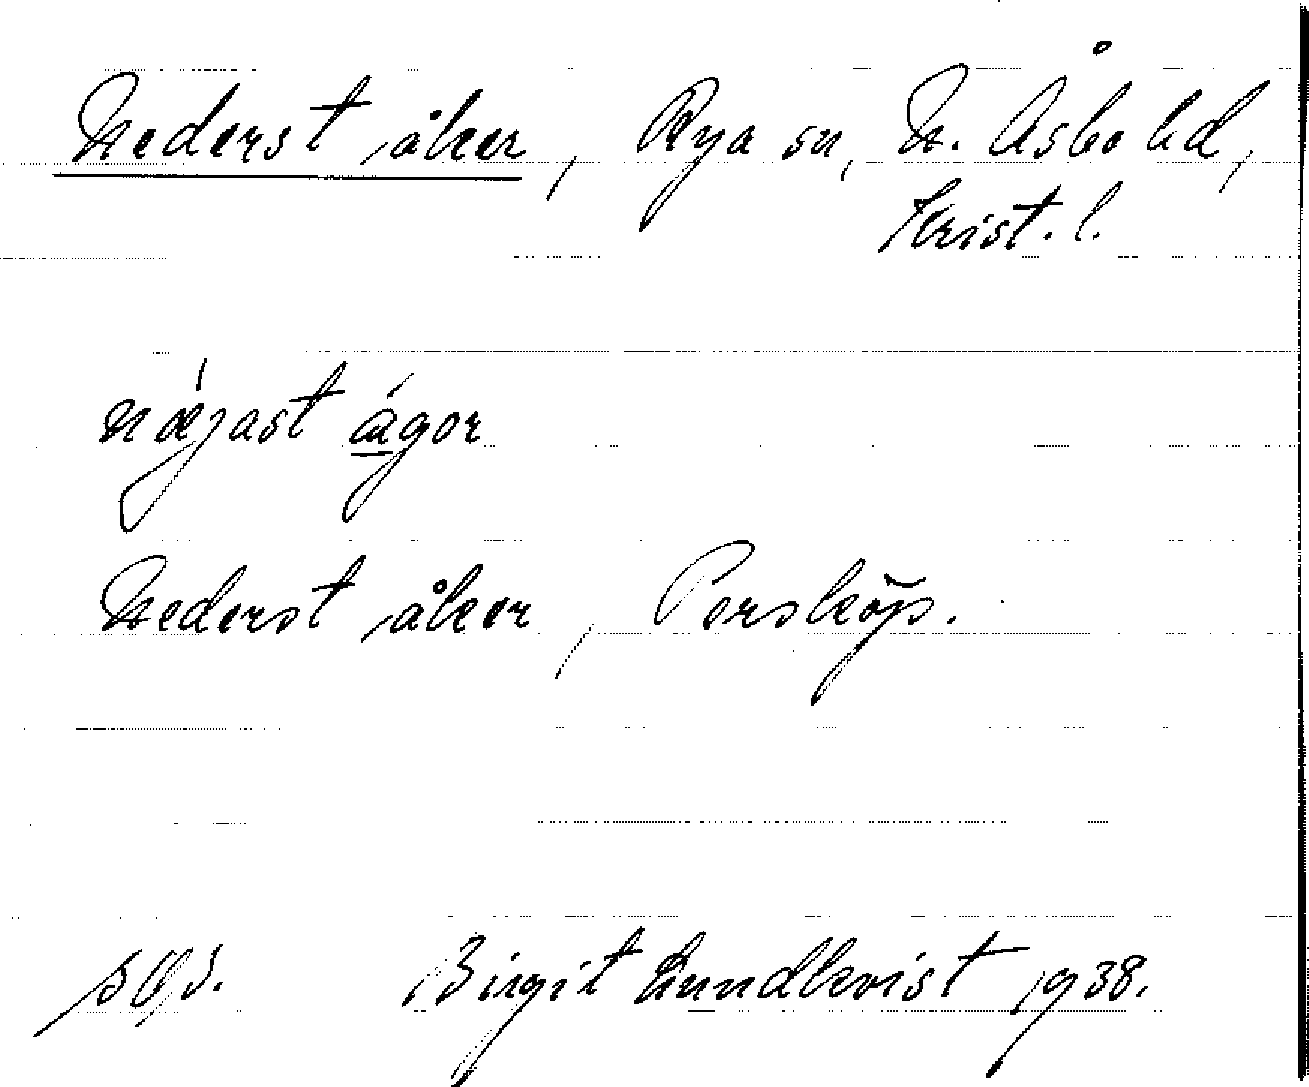 Nederst åker, Rya sn, N. Åsbo hd,
Krist. l.
næ̀jast ágor
Nederst åker, Perskōp.
Birgit Lundkvist 1938.